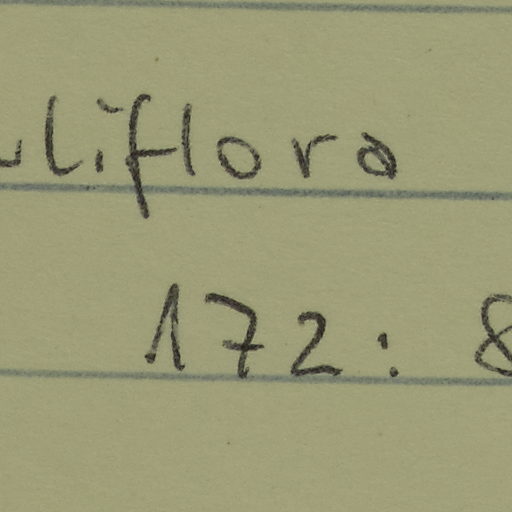 uliflora
172: 8